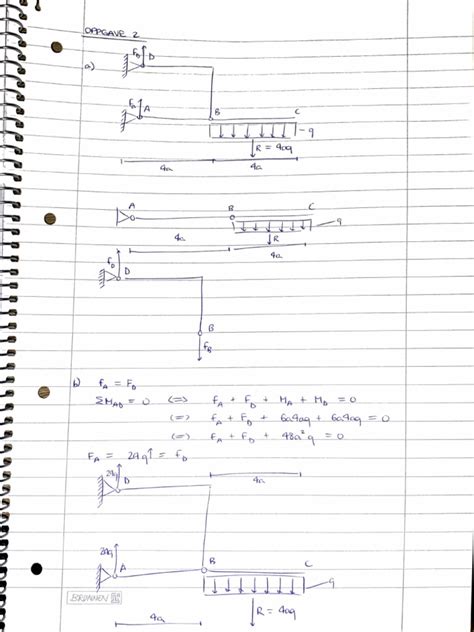 OPPGAVE 2
a)
F_D D
F_A A B C
q
R = 4aq
4a 4a
A B C
q
4a R 4a
F_D D
B
F_B
b) F_A = F_D
ΣM_AD = 0 <=> F_A + F_D + M_A + M_D = 0
<=> F_A + F_D + 6a4aq + 6a4aq = 0
<=> F_A + F_D + 48a²q = 0
F_A = 24q↑ = F_D
24q D 4a
24q A B C
q
R = 4aq
4a